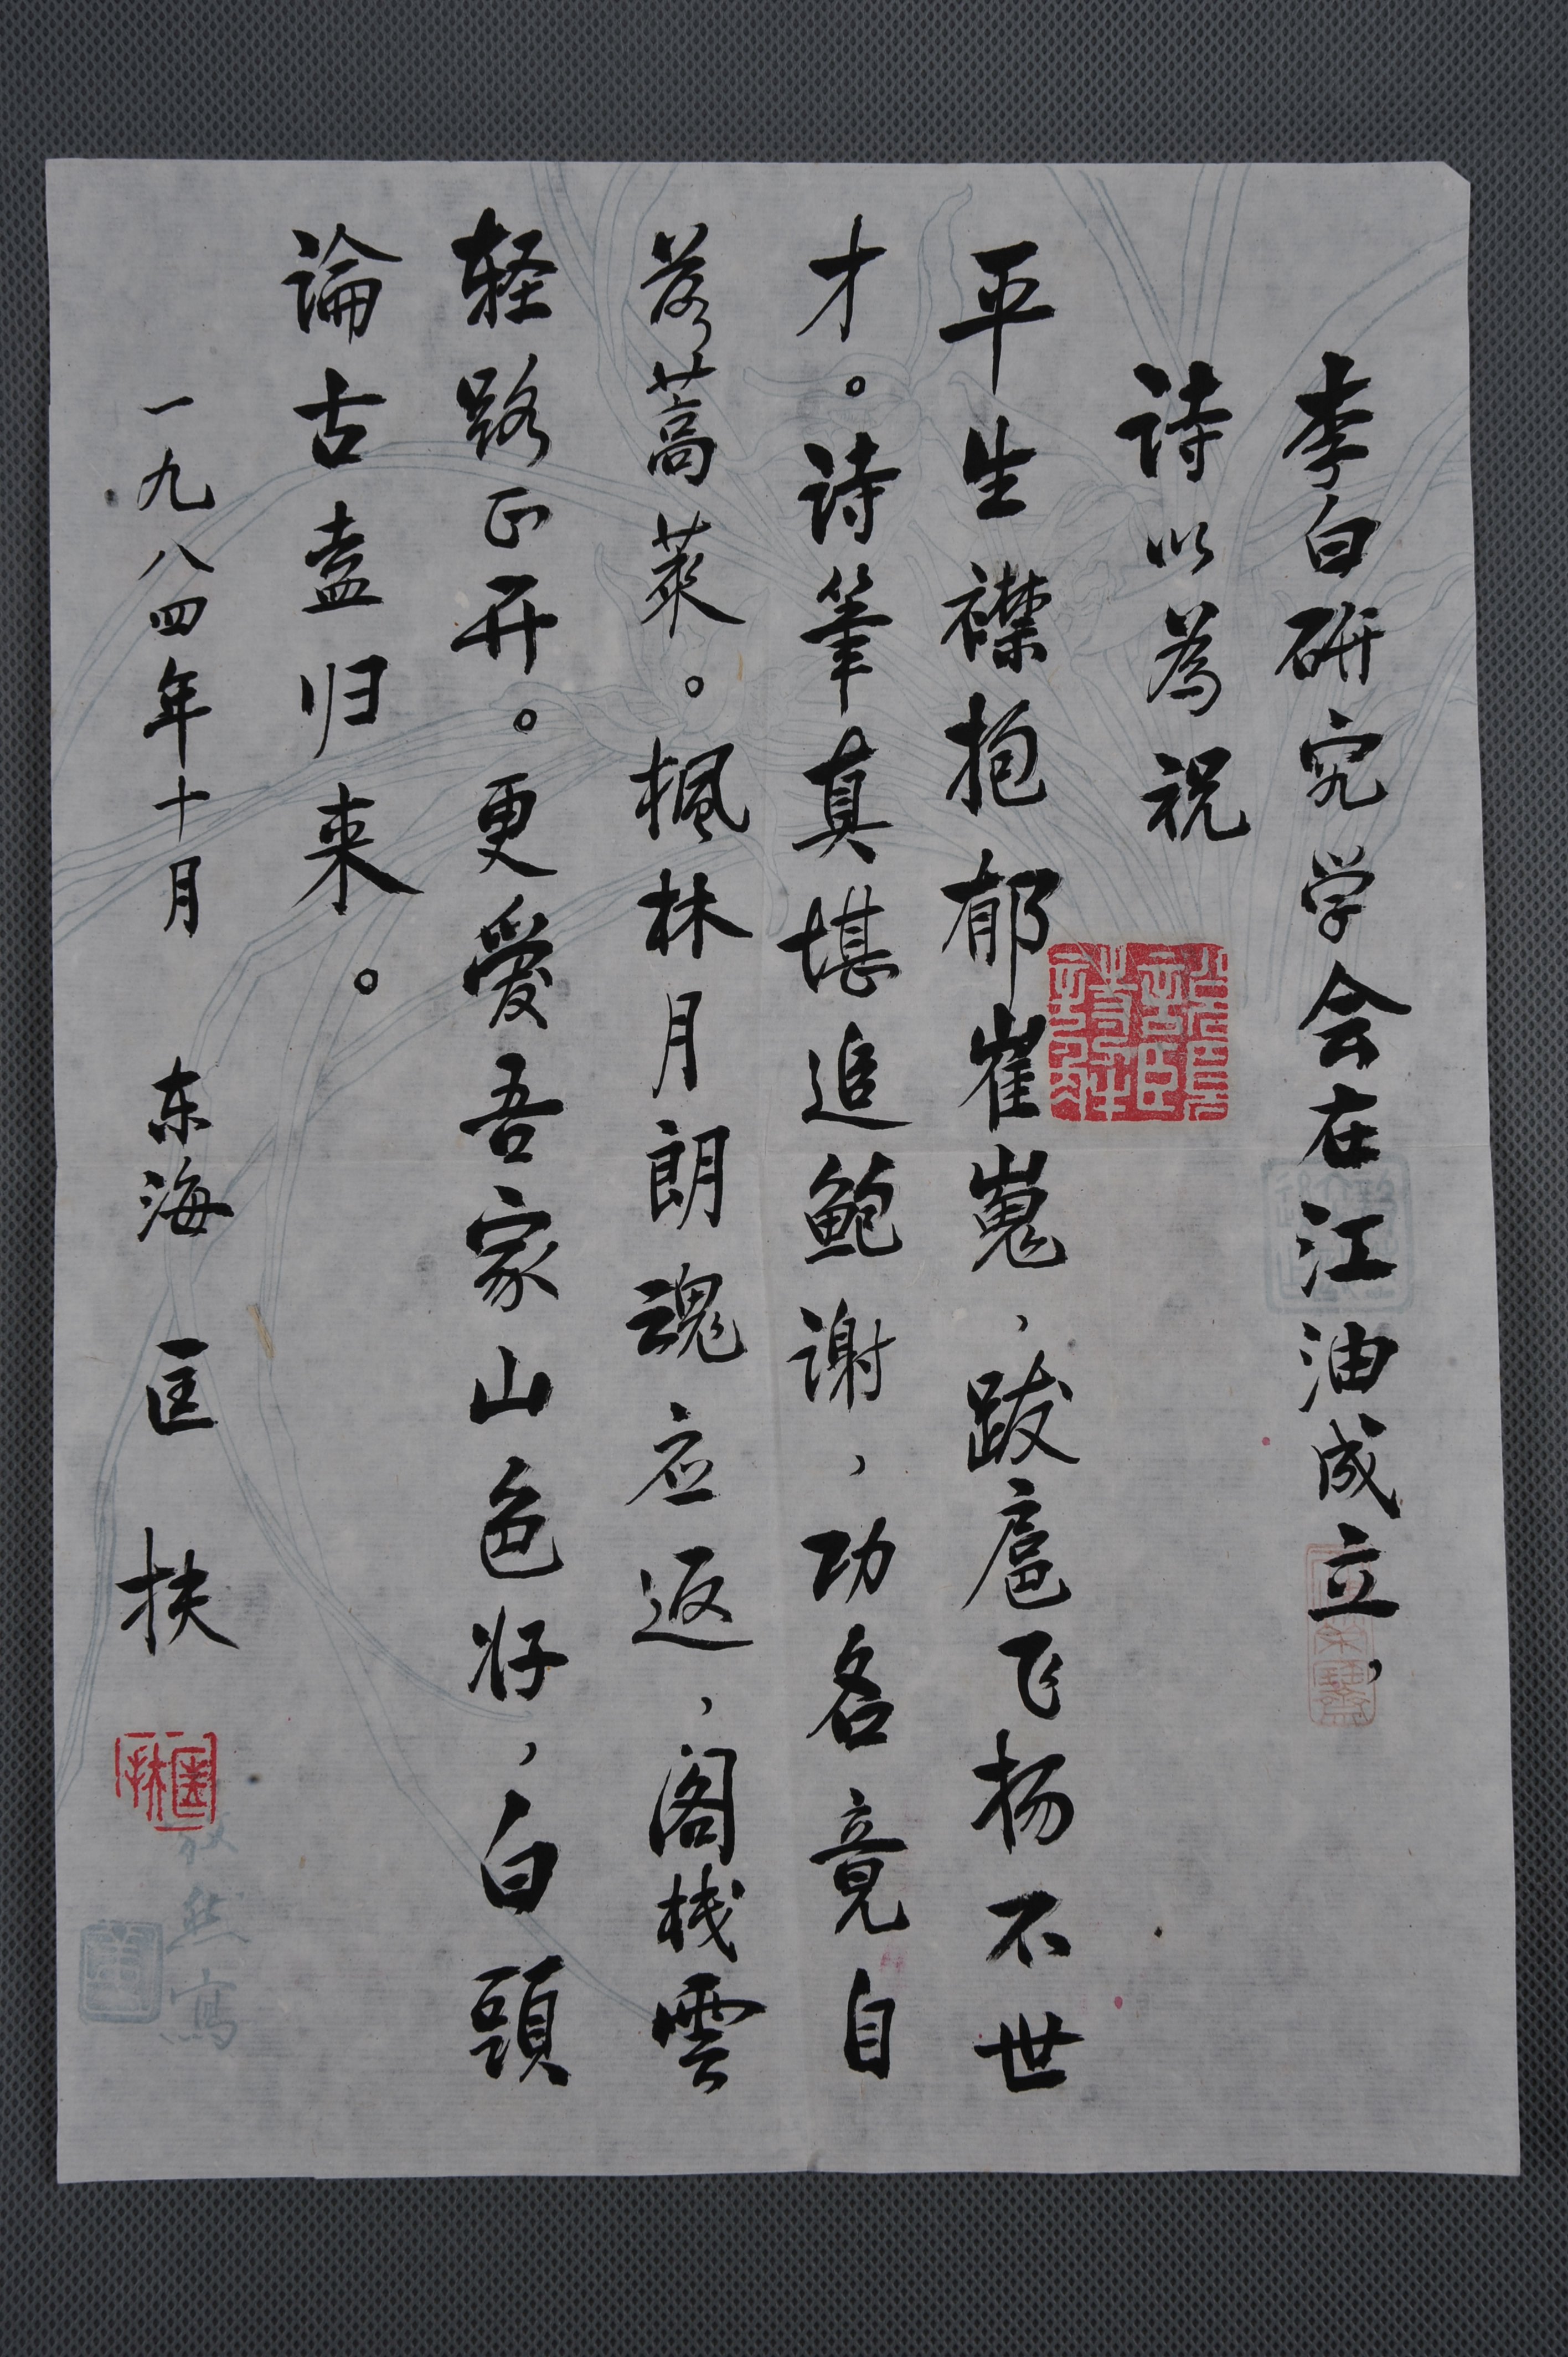 李白研究学会在江油成立，
詩以為祝
平生襟抱郁崔嵬，跋扈飞扬不世
才。詩筆真堪追鲍谢，功名竟自
落蒿莱。楓林月朗魂应返，阁栈雲
轻路正开。更爱吾家山色好，白頭
論古盍归来。
一九八四年十月 东海 匡扶
匡扶